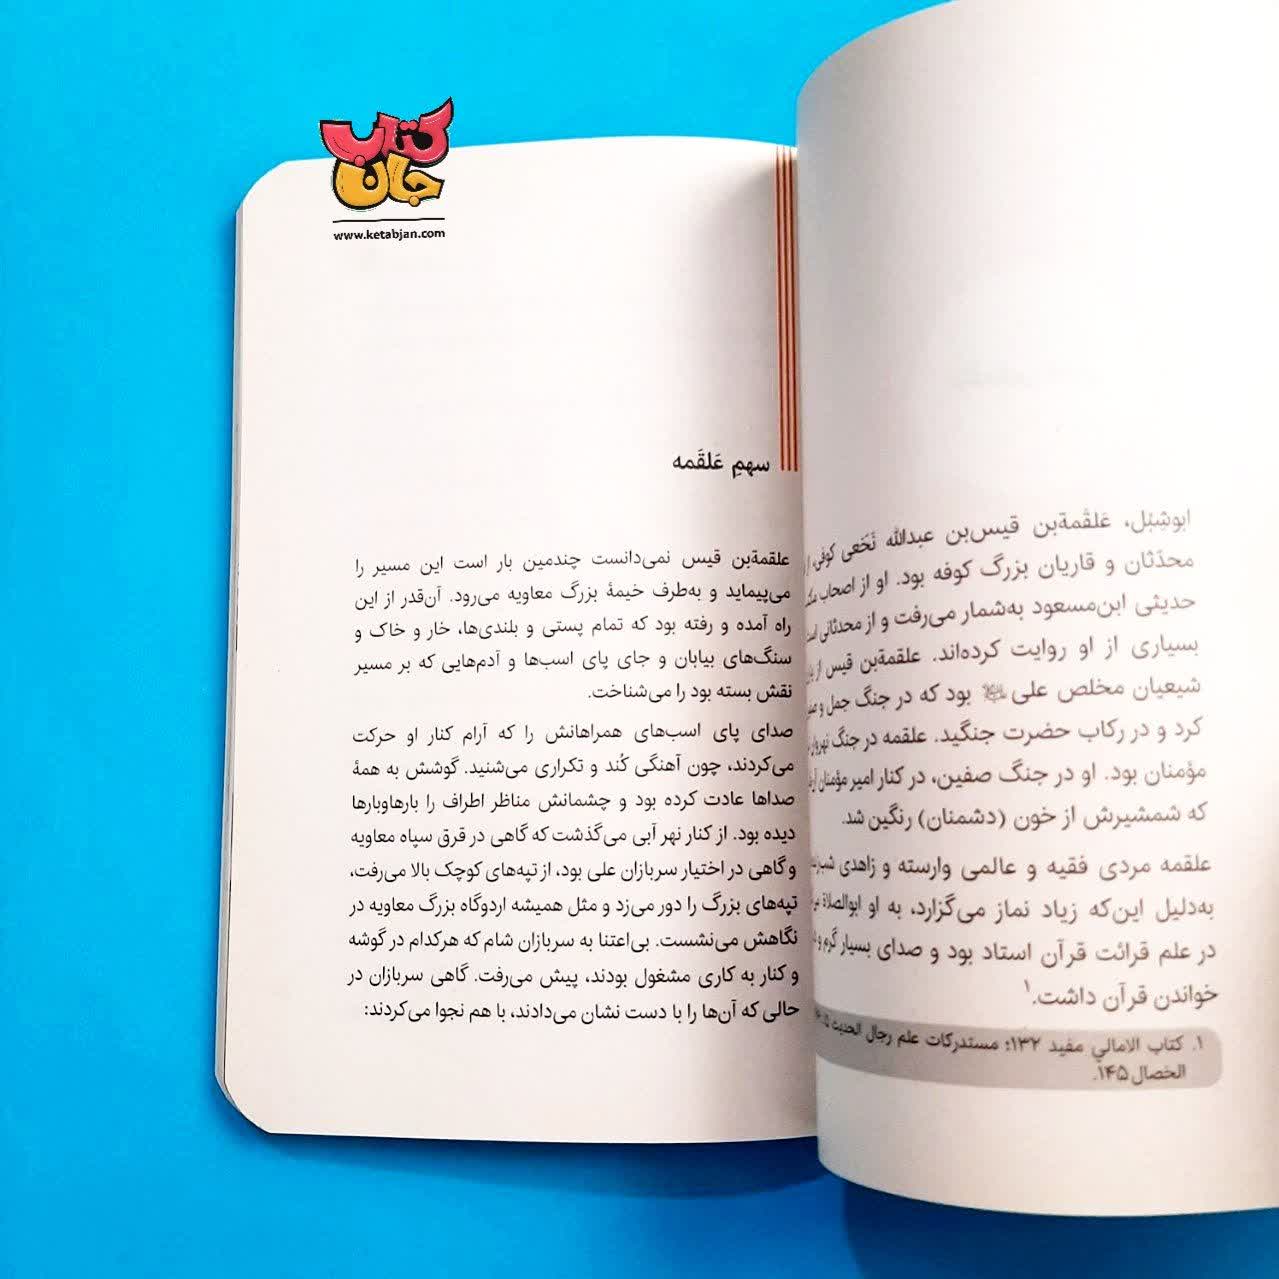 کتاب
جان
www.ketabjan.com
ابوشِبْل، عَلقَمة‌بن قیس‌بن عبدالله نَخَعی کوفی، از
محدّثان و قاریان بزرگ کوفه بود. او از اصحاب
حدیثی ابن‌مسعود به‌شمار می‌رفت و از محدثانی است
بسیاری از او روایت کرده‌اند. علقمة‌بن قیس از
شیعیان مخلص علی بود که در جنگ جمل و
کرد و در رکاب حضرت جنگید. علقمه در جنگ نهروان
مؤمنان بود. او در جنگ صفین، در کنار امیر مؤمنان
که شمشیرش از خون (دشمنان) رنگین شد.
علقمه مردی فقیه و عالمی وارسته و زاهدی
به‌دلیل این‌که زیاد نماز می‌گزارد، به او ابوالصلاة
در علم قرائت قرآن استاد بود و صدای بسیار گرم و
خواندن قرآن داشت.۱
۱. کتاب الامالي مفید ۱۳۲؛ مستدرکات علم رجال الحدیث
الخصال ۱۴۵.
سهمِ عَلقَمه
علقمة‌بن قیس نمی‌دانست چندمین بار است این مسیر را
می‌پیماید و به‌طرف خیمهٔ بزرگ معاویه می‌رود. آن‌قدر از این
راه آمده و رفته بود که تمام پستی و بلندی‌ها، خار و خاک و
سنگ‌های بیابان و جای پای اسب‌ها و آدم‌هایی که بر مسیر
نقش بسته بود را می‌شناخت.
صدای پای اسب‌های همراهانش را که آرام کنار او حرکت
می‌کردند، چون آهنگی کُند و تکراری می‌شنید. گوشش به همهٔ
صداها عادت کرده بود و چشمانش مناظر اطراف را بارهاوبارها
دیده بود. از کنار نهر آبی می‌گذشت که گاهی در قرق سپاه معاویه
و گاهی در اختیار سربازان علی بود، از تپه‌های کوچک بالا می‌رفت،
تپه‌های بزرگ را دور می‌زد و مثل همیشه اردوگاه بزرگ معاویه در
نگاهش می‌نشست. بی‌اعتنا به سربازان شام که هرکدام در گوشه
و کنار به کاری مشغول بودند، پیش می‌رفت. گاهی سربازان در
حالی که آن‌ها را با دست نشان می‌دادند، با هم نجوا می‌کردند: